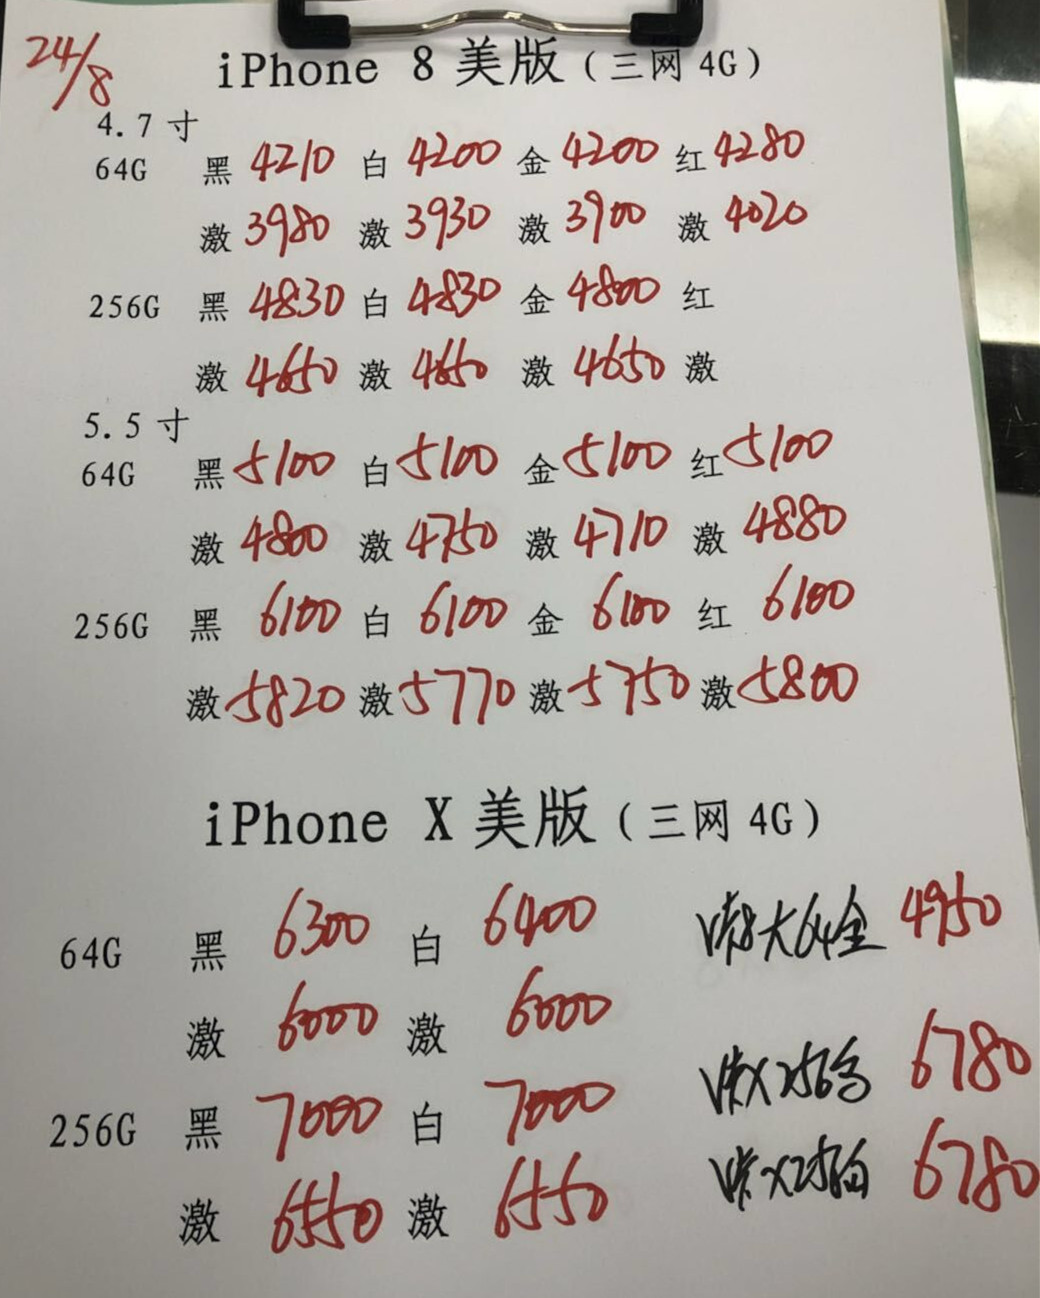 24/8
iPhone 8 美版 (三网 4G)
4.7 寸
64G 黑 4210 白 4200 金 4200 红 4280
激 3980 激 3930 激 3900 激 4020
256G 黑 4830 白 4830 金 4800 红
激 4650 激 4650 激 4650 激
5.5 寸
64G 黑 5100 白 5100 金 5100 红 5100
激 4800 激 4750 激 4710 激 4880
256G 黑 6100 白 6100 金 6100 红 6100
激 5820 激 5770 激 5750 激 5800
iPhone X 美版 (三网 4G)
64G 黑 6300 白 6400 8大64金 4950
激 6000 激 6000
X 256 6780
256G 黑 7000 白 7000
X 256白 6780
激 6550 激 6550